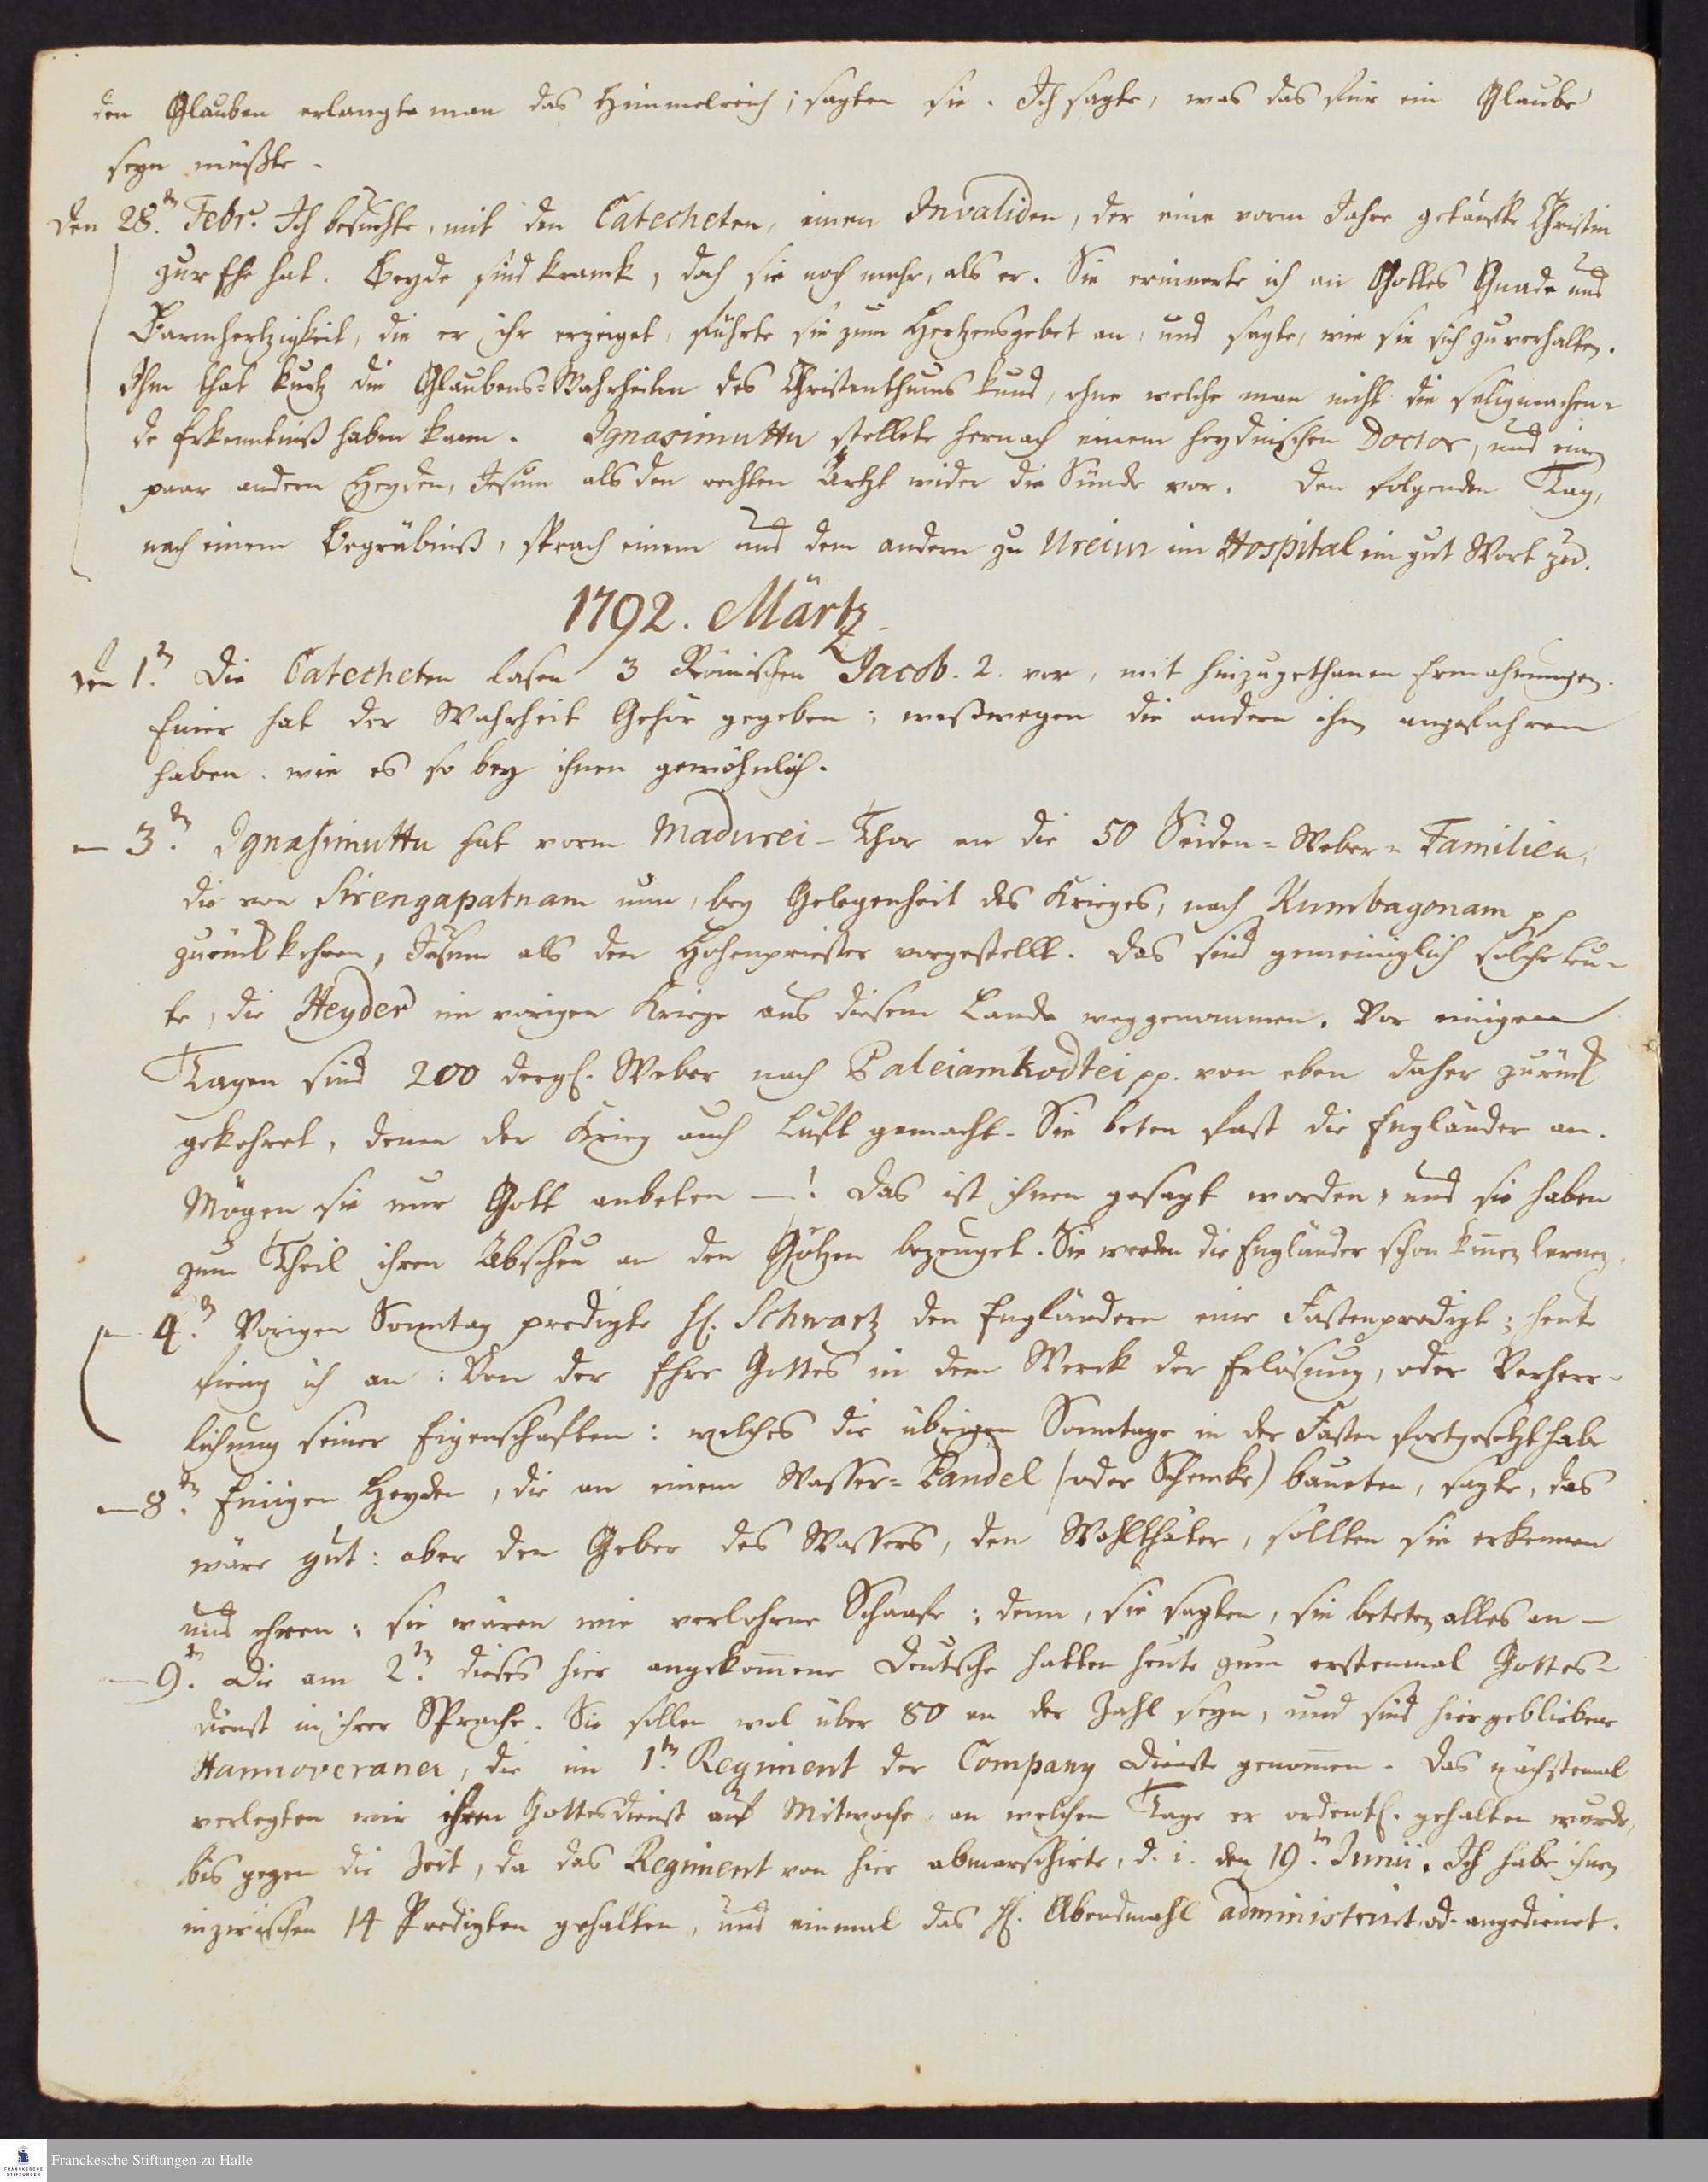 den Glauben erlangte man das Himmelreich; sagten sie. Ich sagte, was das für ein Glaube
seyn müßte.
den 28.ⁿ Febr. Ich besuchte, mit den Catecheten, einen Invaliden, der eine vorm Jahre getaufte Christin
zur Ehe hat. Beyde sind kranck, doch sie noch mehr, als er. Sie erinnerte ich an Gottes Gnade und
Barmhertzigkeit, die er ihr erzeiget, führte sie zum Hertzensgebet an, und sagte, wie sie sich zu verhalten.
Ihm that kurtz die Glaubens-Wahrheiten des Christenthums kund, ohne welche man nicht die seligmachen-
de Erkenntniß haben kann. Ignasimuttu stellete hernach einem heydnischen Doctor, und einem
paar andern Heyden, Jesum als den rechten Artzt wider die Sünde vor. Den folgenden Tag,
nach einem Begräbniß, sprach einem und dem andern zu Ureiur im Hospital ein gut Wort zu.
1792. Märtz.
den 1.ⁿ Die Catecheten lasen 3 Römischen Jacob. 2. vor, mit hinzugethanen Ermahnungen.
Einer hat der Wahrheit Gehör gegeben; weßwegen die andern ihn angefahren
haben: wie es so bey ihnen gewöhnlich.
— 3.ⁿ Ignasimuttu hat vorm Madurei-Thor an die 50 Seiden-Weber-Familien,
die von Sirengapatnam nun, bey Gelegenheit des Krieges, nach Kumbagonam pp
zurück kehren, Jesum als den Hohenpriester vorgestellt. Das sind gemeiniglich solche Leu-
te, die Heyder im vorigen Kriege aus diesem Lande weggenommen. Vor einigen
Tagen sind 200 dergl. Weber nach Paleiamkodtei pp. von eben daher zurück
gekehret, denen der Krieg auch Luft gemacht. Sie beten fast die Engländer an.
Mögen sie nur Gott anbeten —! Das ist ihnen gesagt worden, und sie haben
zum Theil ihren Abscheu an den Götzen bezeuget. Sie werden die Engländer schon kennen lernen.
— 4.ⁿ Vorigen Sonntag predigte H. Schwartz den Engländern eine Fastenpredigt; heute
fieng ich an: Von der Ehre Gottes in dem Werck der Erlösung, oder Verherr-
lichung seiner Eigenschaften: welches die übrigen Sonntage in der Fasten fortgesetzt habe
— 8.ⁿ Einigen Heyden, die an einem Wasser-Pandel (oder Schencke) baueten, sagte, das
wäre gut: aber den Geber des Wassers, den Wohlthäter, sollten sie erkennen
und ehren; sie wären wie verlohrne Schaafe; denn, sie sagten, sie beteten alles an —
— 9.ⁿ Die am 2.ⁿ dieses hier angekom̄ene Deutsche hatten heute zum erstenmal Gottes-
dienst in ihrer Sprache. Sie sollen wol über 80 an der Zahl seyn, und sind hiergebliebene
Hannoveraner, die im 1.ᵗⁿ Regiment der Company Dienste genom̄en. Das nächstemal
verlegten wir ihren Gottesdienst auf Mitwoche, an welchem Tage er ordentl. gehalten wurde,
bis gegen die Zeit, da das Regiment von hier abmarschirte, d. i. den 19.ᵗⁿ Junii. Ich habe ihnen
inzwischen 14 Predigten gehalten, und einmal das H. Abendmahl administrirt, od. angedienet.
Franckesche Stiftungen zu Halle